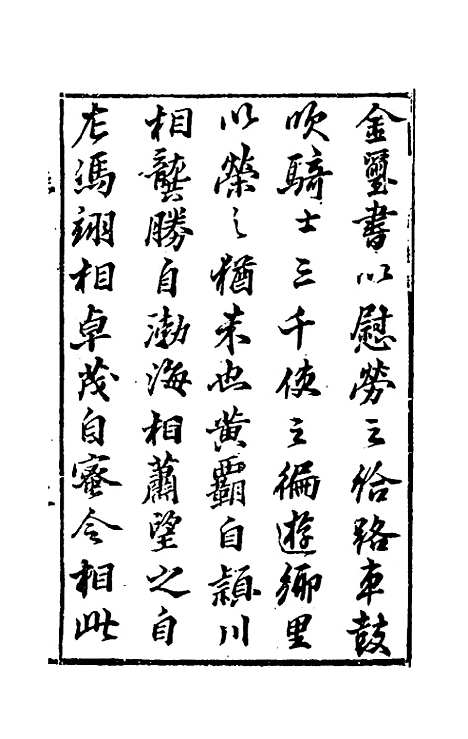 金璽書以慰勞之給路車鼓
吹騎士三千使之徧遊鄉里
以榮之猶未也黃霸自潁川
相龔勝自渤海相蕭望之自
左馮翊相卓茂自密令相此